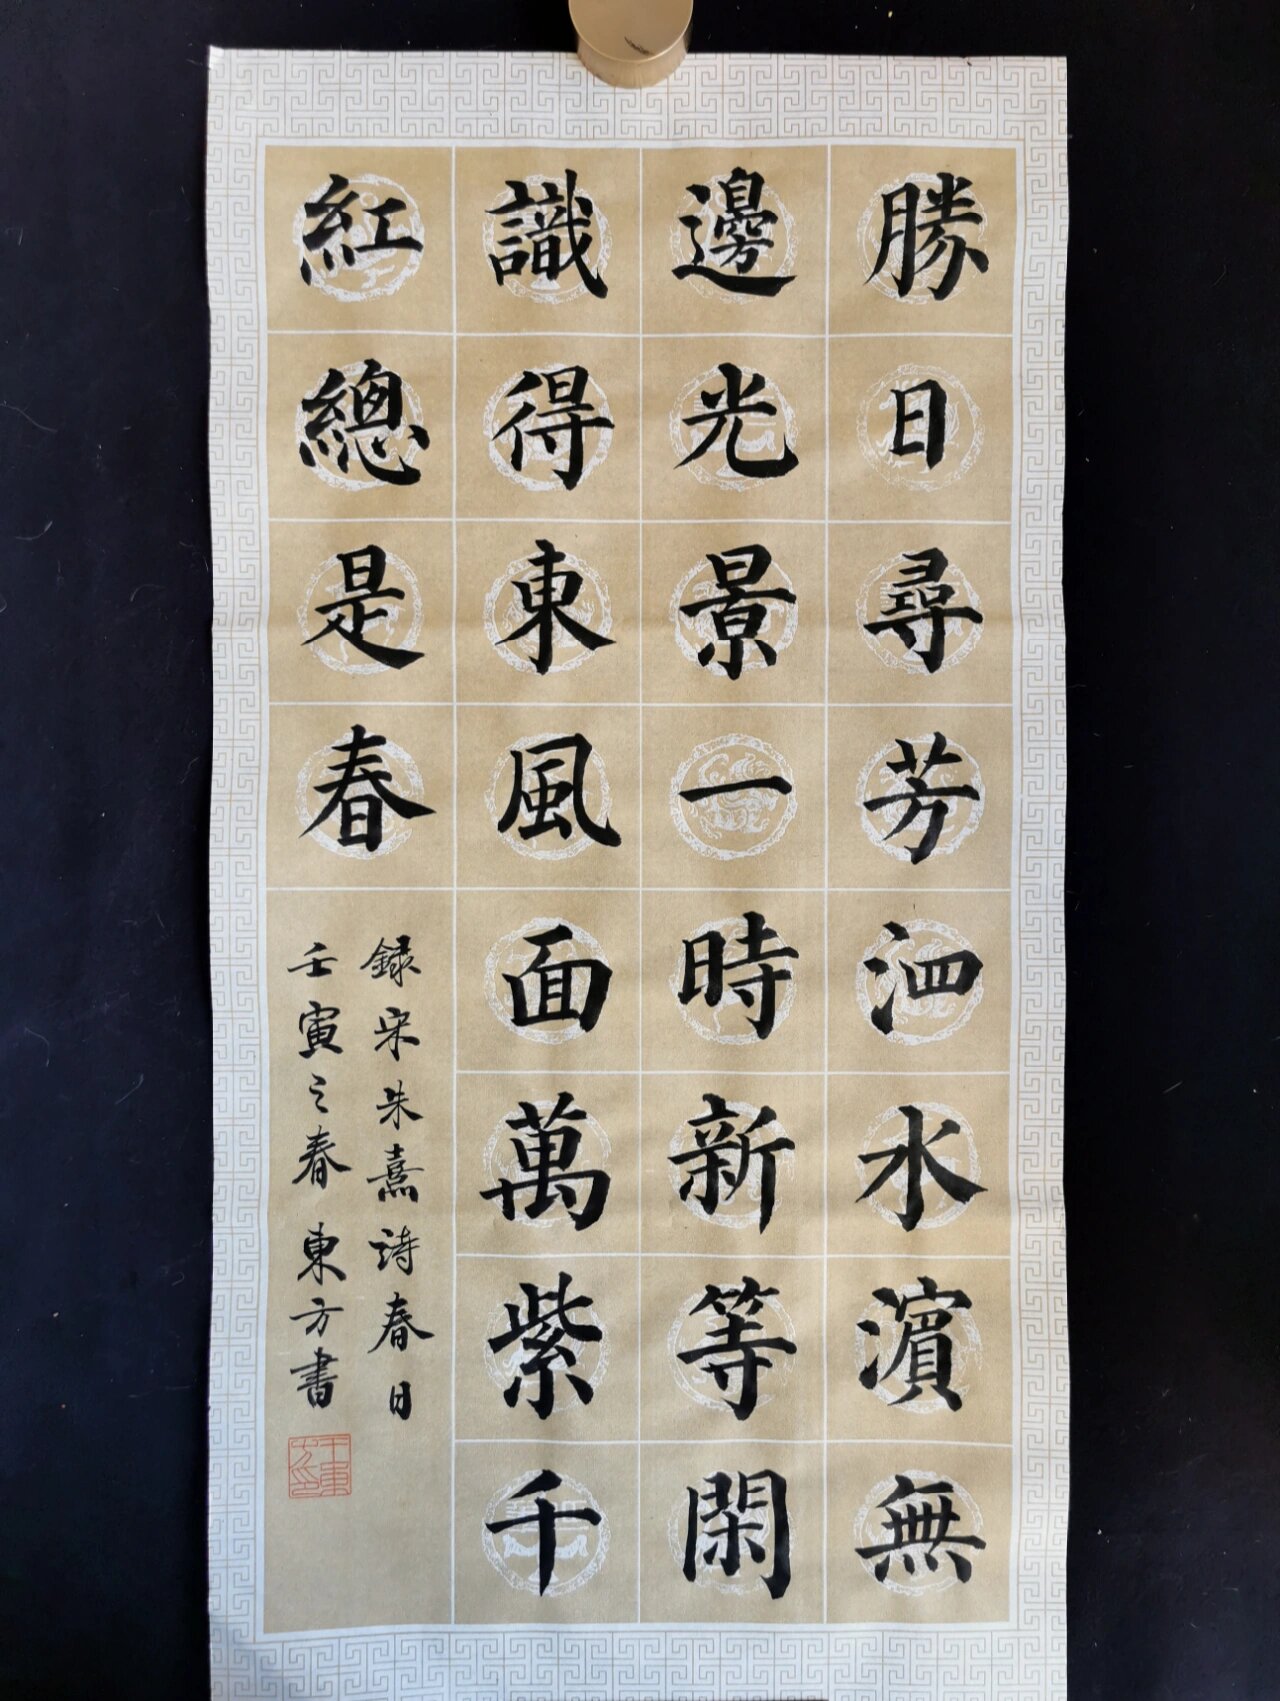 勝日尋芳泗水濱無
邊光景一時新等閑
識得東風面萬紫千
紅總是春
録宋朱熹詩春日
壬寅之春東方書